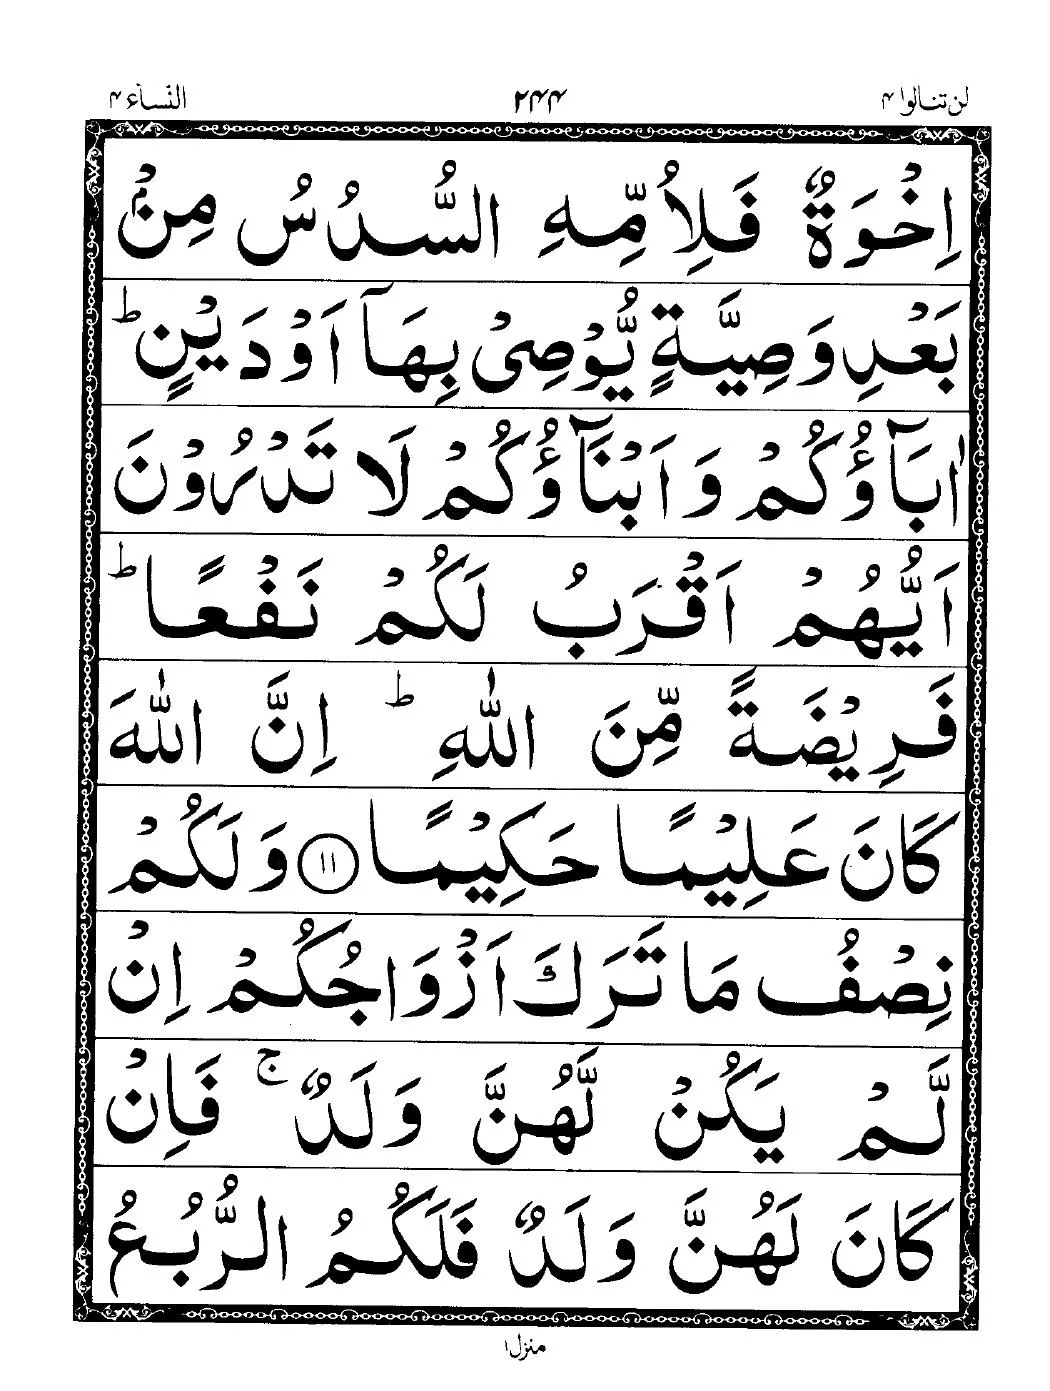 لن تنالوا ۴ ۲۴۴ النسآء ۴
اِخْوَةٌ فَلِاُمِّهِ السُّدُسُ مِنْۢ
بَعْدِ وَصِيَّةٍ يُّوْصِىْ بِهَآ اَوْ دَيْنٍ ؕ
اٰبَآؤُكُمْ وَ اَبْنَآؤُكُمْ لَا تَدْرُوْنَ
اَيُّهُمْ اَقْرَبُ لَكُمْ نَفْعًا ؕ
فَرِيْضَةً مِّنَ اللّٰهِ ؕ اِنَّ اللّٰهَ
كَانَ عَلِيْمًا حَكِيْمًا ۝۱۱ وَ لَكُمْ
نِصْفُ مَا تَرَكَ اَزْوَاجُكُمْ اِنْ
لَّمْ يَكُنْ لَّهُنَّ وَلَدٌ ۚ فَاِنْ
كَانَ لَهُنَّ وَلَدٌ فَلَكُمُ الرُّبُعُ
منزل ۱